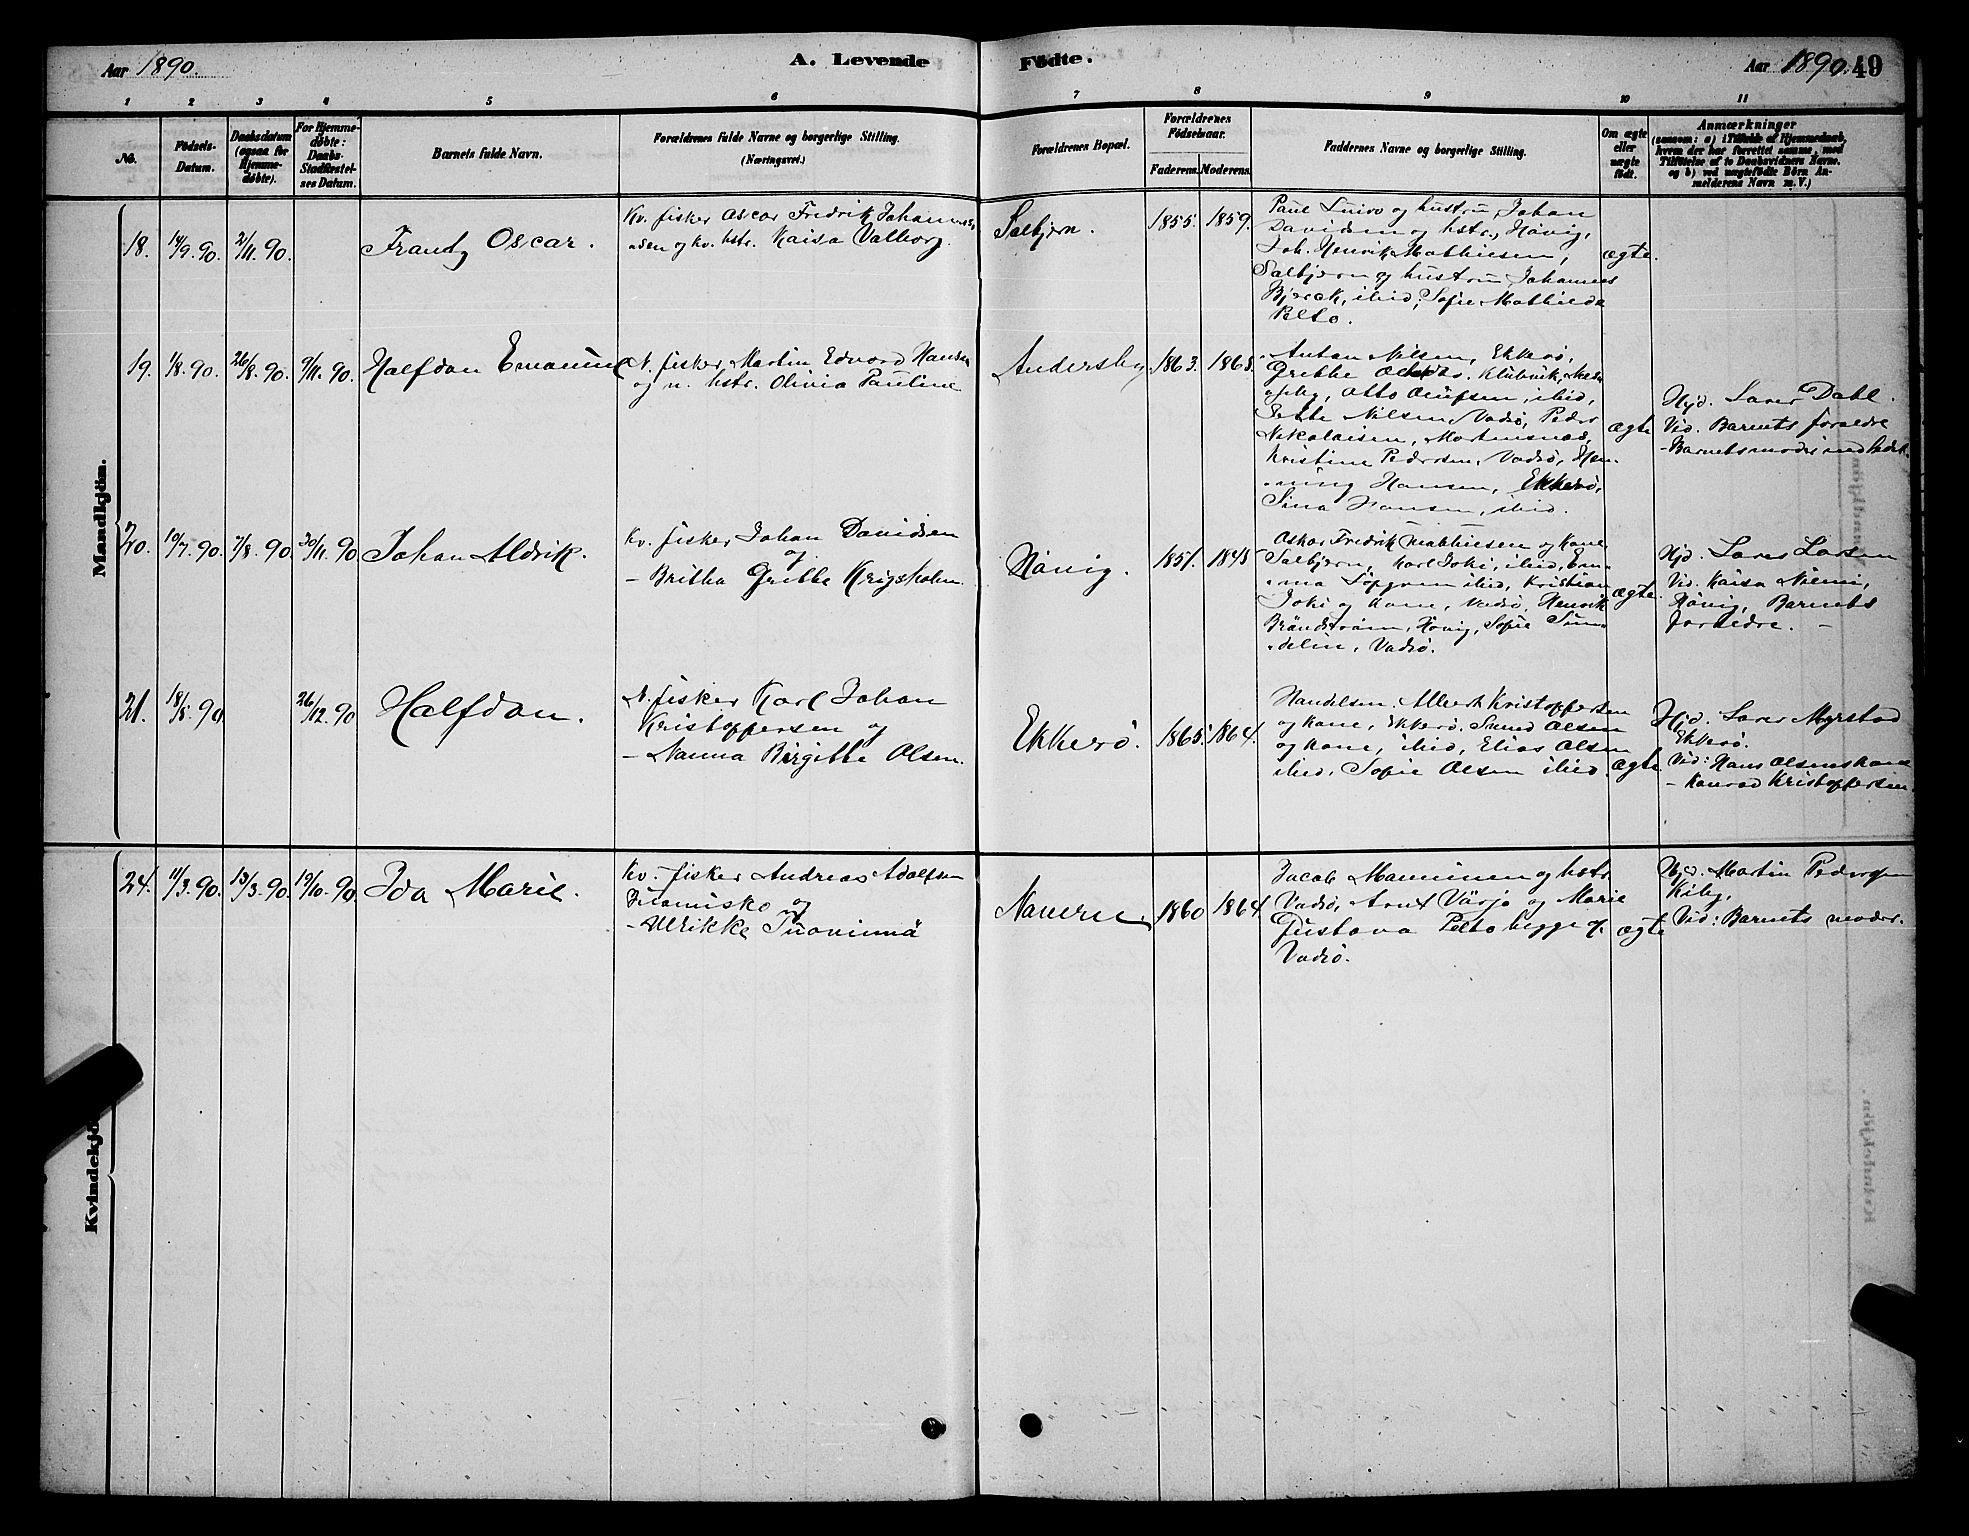 Aar 1890.
A. Levende Fødte.
Aar 1890. 49
1 2 3 4 5 6 7 8 9 10 11
No.
Fødsels-
Datum.
Daabsdatum
(ogsaa for
Hjemme-
døbte).
For Hjemme-
døbte:
Daabs-
Stadfæstel-
ses Datum.
Barnets fulde Navn.
Forældrenes fulde Navne og borgerlige Stilling.
(Næringsvei.)
Forældrenes Bopæl.
Forældrenes
Fødselsaar.
Faderens. Moderens.
Faddernes Navne og borgerlige Stilling.
Om ægte
eller
uægte
født.
Anmærkninger
(saasom: a) i Tilfælde af Hjemmedaab,
hvem der har forrettet samme, med
Tilføielse af to Daabsvidners Navne,
og b) ved uægtefødte Børn An-
melderens Navn m. V.)
Mandkjøn.
18. 14/9.90. 2/11.90.
Frantz Oscar.
Kv. fisker Oscar Fredrik Johannes
Kaisa Valborg.
Salbjørn.
1855. 1859.
og hustru, Johan
Davidsen og hstr., Håvig,
Joh. Henrik Mathiesen,
Salbjørn og hustru Johannes
Bjerck, ibid, Sofie Mathilde
Pelto.
ægte.
19. 1/8.90. 26/8.90. 9/11.90.
Halfdan Emanuel
N. fisker Martin Edvard Hansen
og n. hstr. Olivia Pauline
Andersby
1863. 1868.
Anton Nilsen, Ekkerø,
Grethe Klubvik,
Otto Olufsen, ibid,
Jette Nilsen, Vadsø, Peder
Nikolaisen, Mortensnæs,
Kristine Pedersen, Vadsø, Hen-
ning Hansen, Ekkerø,
Sina Hansen, ibid.
ægte
Hjd. Lærer Dahl.
Vid. Barnets forældre
20. 10/7.90. 7/8.90 30/11.90
Johan Aldrik.
Kv. fisker Johan Davidsen
og
- Britha Grethe Krigsholm.
Håvig.
1851. 1848
Oskar Fredrik Mathiesen og Kone
Salbjørn, Karl Joki, ibid, Em-
ma ibid, Kristian
Joki og Kone, Vadsø, Henrik
Brändström, Håvig, Sofie Sun-
delin, Vadsø.
ægte.
Hjd. Lærer Larsen
Vid. Kaisa Niemi,
Håvig, Barnets
forældre. -
21. 18/8.90 26/12.90
Halfdan.
N. fisker Karl Johan
Kristoffersen og
- Nanna Birgitte Olsen.
Ekkerø.
1865. 1864.
Handelsm. Albert Kristoffersen
og Kone, Ekkerø. Olsen
og Kone, ibid, Elias Olsen
ibid, Sofie Olsen ibid
ægte.
Hjd. Lærer Myrstad
Ekkerø.
Vid: Hans Olsens Kone
- Konrad Kristoffersen.
Kvindekjø
24. 11/3.90. 13/3.90. 19/10.90.
Ida Marie.
Kv. fisker Andreas Adolfsen
og
- Ulrikke
1860 1864
Jacob Manninen og hstr.
Vadsø, Värjö og Marie
Gustava Pelto begge af
Vadsø.
ægte
Hjd. Martin Pedersen
Kiby,
Vid: Barnets moder.